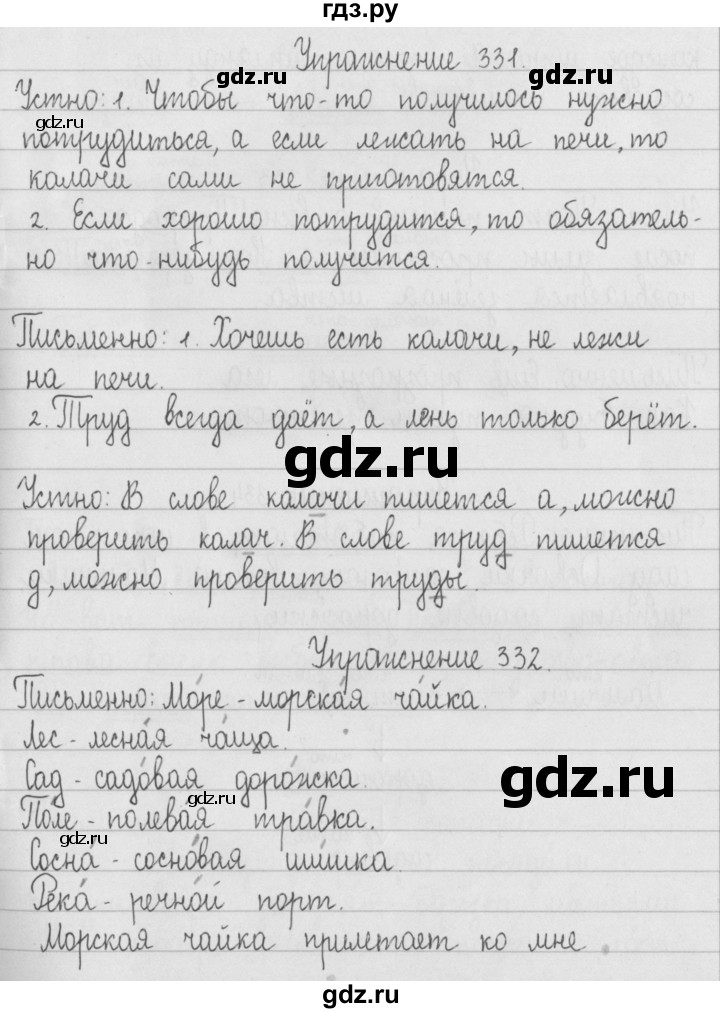 гдз.ру
Упражнение 331.
gdz.ru
Устно: 1. Чтобы что-то получилось нужно
gdz.ru
gdz.ru
потрудиться, а если лежать на печи, то
калачи сами не приготовятся.
2. Если хорошо потрудится, то обязатель-
но что-нибудь получится.
Письменно: 1. Хочешь есть калачи, не лежи
на печи.
2. Труд всегда даёт, а лень только берёт.
gdz.ru
Устно: В слове калачи пишется а, можно
проверить калач. В слове труд пишется
д, можно проверить труды.
Упражнение 332.
Письменно: Мо́ре - морска́я ча́йка.
Лес - лесна́я ча́ща.
Сад - садо́вая доро́жка.
gdz.ru
gdz.ru
По́ле - полева́я тра́вка.
gdz.ru
Сосна́ - сосно́вая ши́шка.
Река́ - речно́й порт.
Морская чайка прилетает ко мне.
gdz.ru